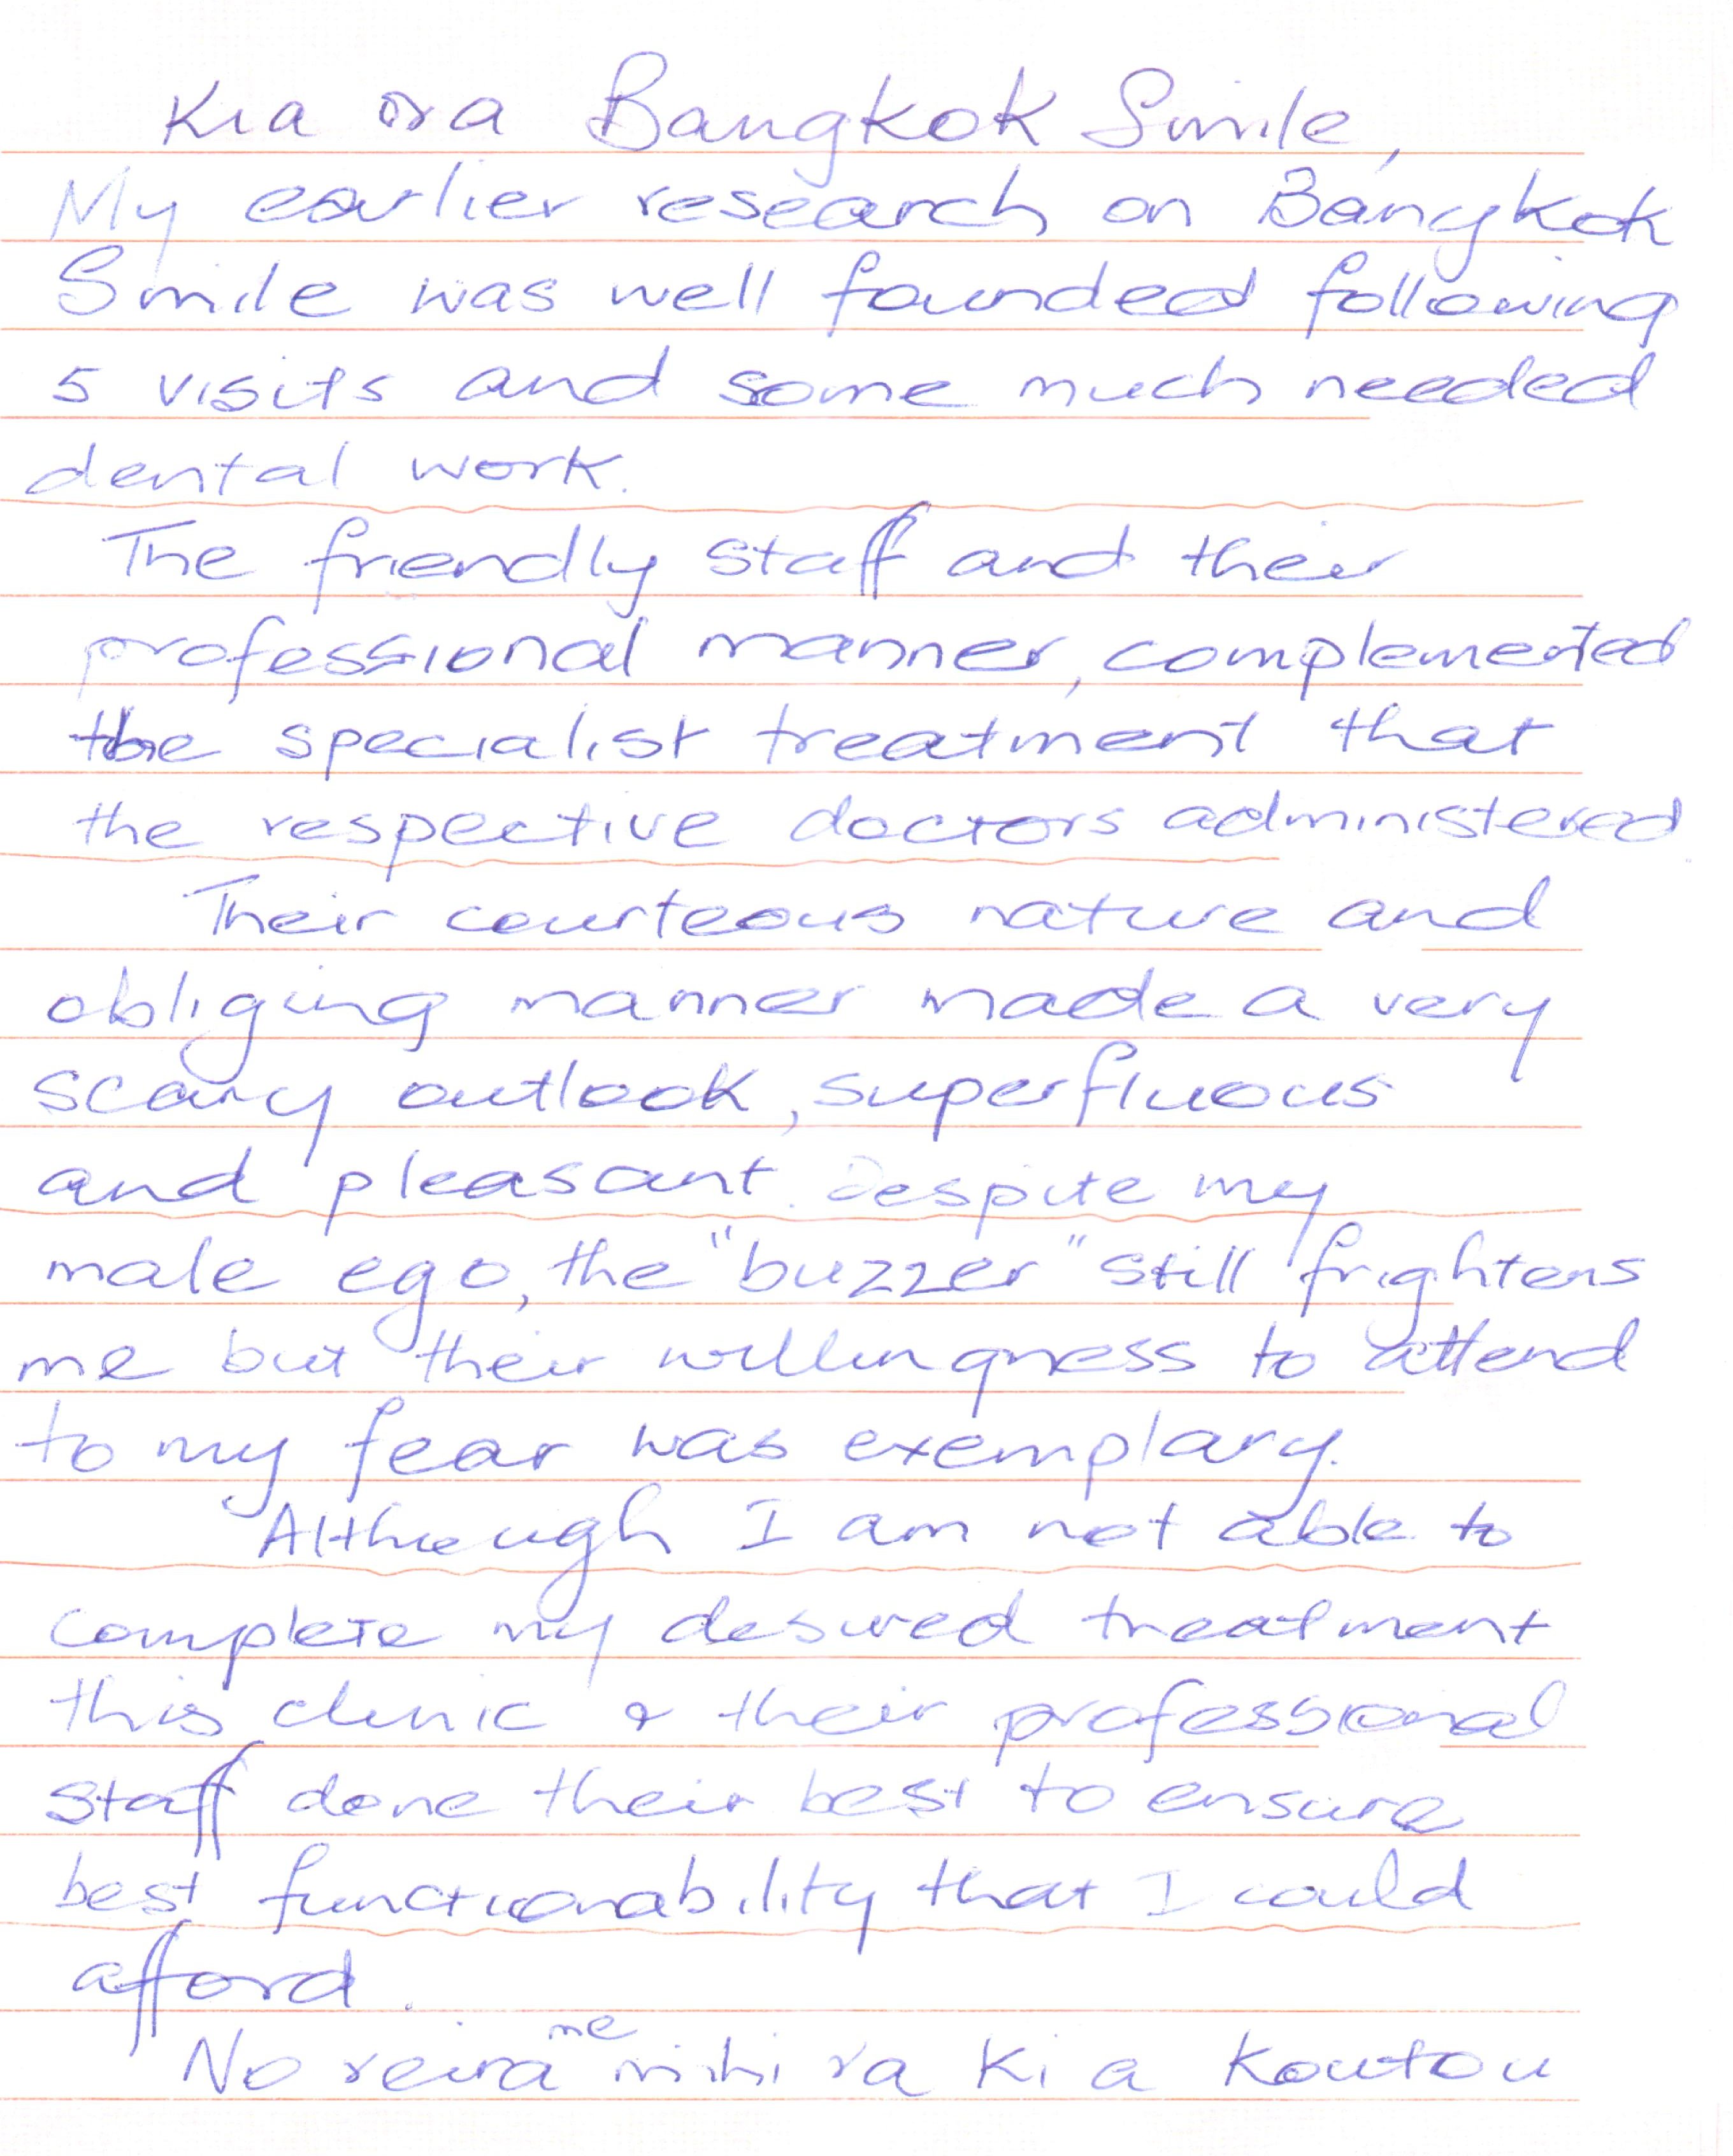 Kia ora Bangkok Smile,
My earlier research on Bangkok
Smile was well founded following
5 visits and some much needed
dental work.
The friendly staff and their
professional manner, complemented
the specialist treatment that
the respective doctors administered.
Their courteous nature and
obliging manner made a very
scary outlook, superfluous
and pleasant. Despite my
male ego, the "buzzer" still frightens
me but their willingness to attend
to my fear was exemplary.
Although I am not able to
complete my desired treatment
this clinic & their professional
staff done their best to ensure
best functionability that I could
afford.
No reira me mihi ra ki a koutou